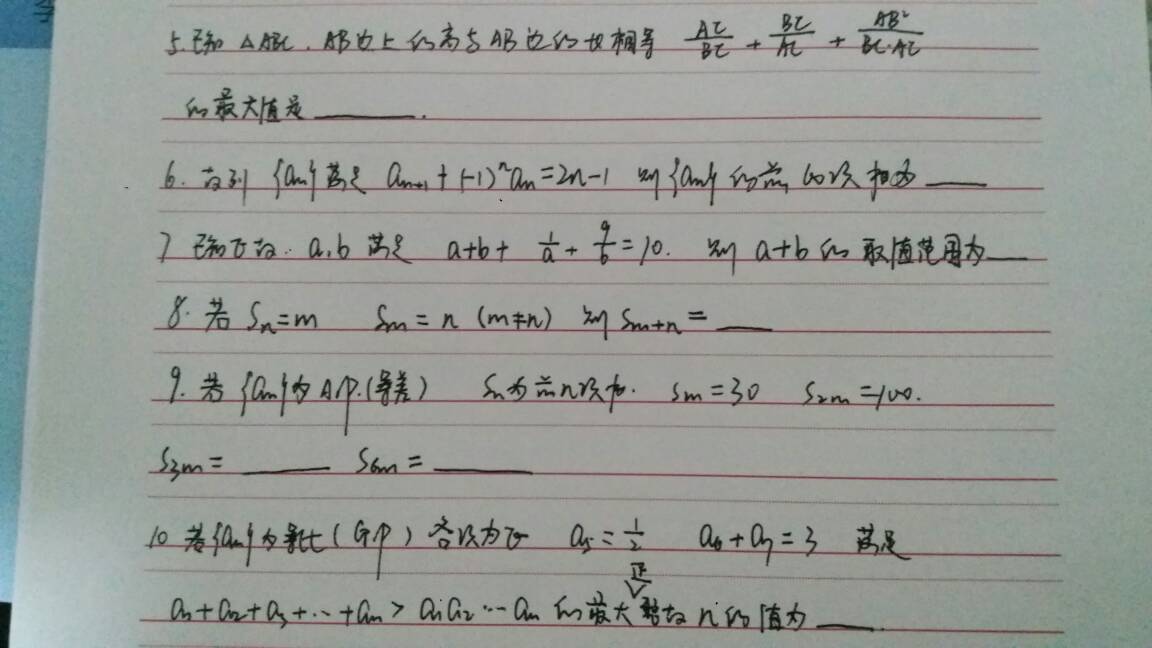 5.已知 △ABC. AB边上的高与AB边的长相等 AC/BC + BC/AC + AB²/BC·AC
的最大值是______.
6. 数列 {an}满足 an+1 + (-1)ⁿan=2n-1 则{an} 的前 60项和为____
7 已知正数. a,b 满足 a+b+ 1/a + 9/b =10. 则 a+b 的 取值范围为___
8. 若 Sn=m Sm=n (m≠n) 则 Sm+n=____
9. 若 {an}为 A.P.(等差) Sn为前n项和. Sm=30 S2m=100.
S3m=______ S6m=______
10 若{an}为等比(GP) 各项为正 a5=1/2 a6+a7=3 满足
正
a1+a2+a3+…+an > a1a2…an 的最大整数 n的值为____.